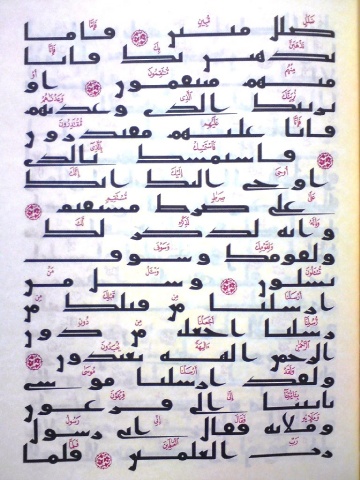 ضلل مبين ۝ فاما
نذهبن بك فانا
منهم منتقمون ۝ او
نرينك الذي وعدنهم
فانا عليهم مقتدرون
۝ فاستمسك بالذي
اوحي اليك انك
على صرط مستقيم ۝
وانه لذكر لك
ولقومك وسوف
تسلون ۝ وسل من
ارسلنا من قبلك من
رسلنا اجعلنا من دون
الرحمن الهة يعبدون ۝
ولقد ارسلنا موسى
بايتنا الى فرعون
وملايه فقال اني رسول
رب العلمين ۝ فلما